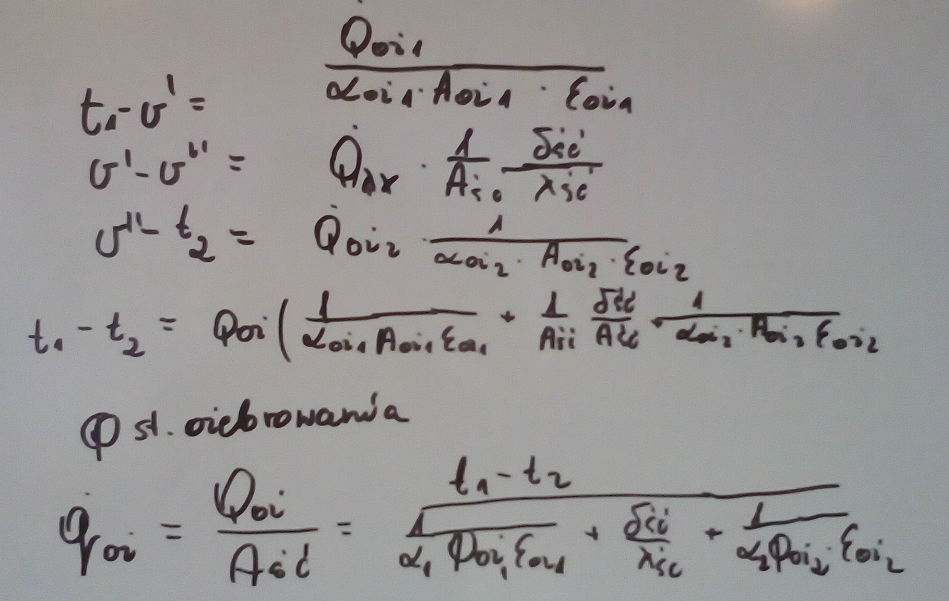 t₁ - υ' = Q̇oi₁ / (αoi₁ · Aoi₁ · εoi₁)
υ' - υ'' = Q̇λx · 1/Aśc · δść/λść
υ'' - t₂ = Q̇oi₂ · 1/(αoi₂ · Aoi₂ · εoi₂)
t₁ - t₂ = Qoi ( 1/(αoi₁ Aoi₁ εoi₁) + 1/Aść δść/Aść + 1/(αoi₂ · Aoi₂ εoi₂)
φ st. ożebrowania
q̇oi = Q̇oi/Aść = (t₁ - t₂) / (1/(α₁ φoi₁ εoi₁) + δść/λść + 1/(α₂ φoi₂ · εoi₂))